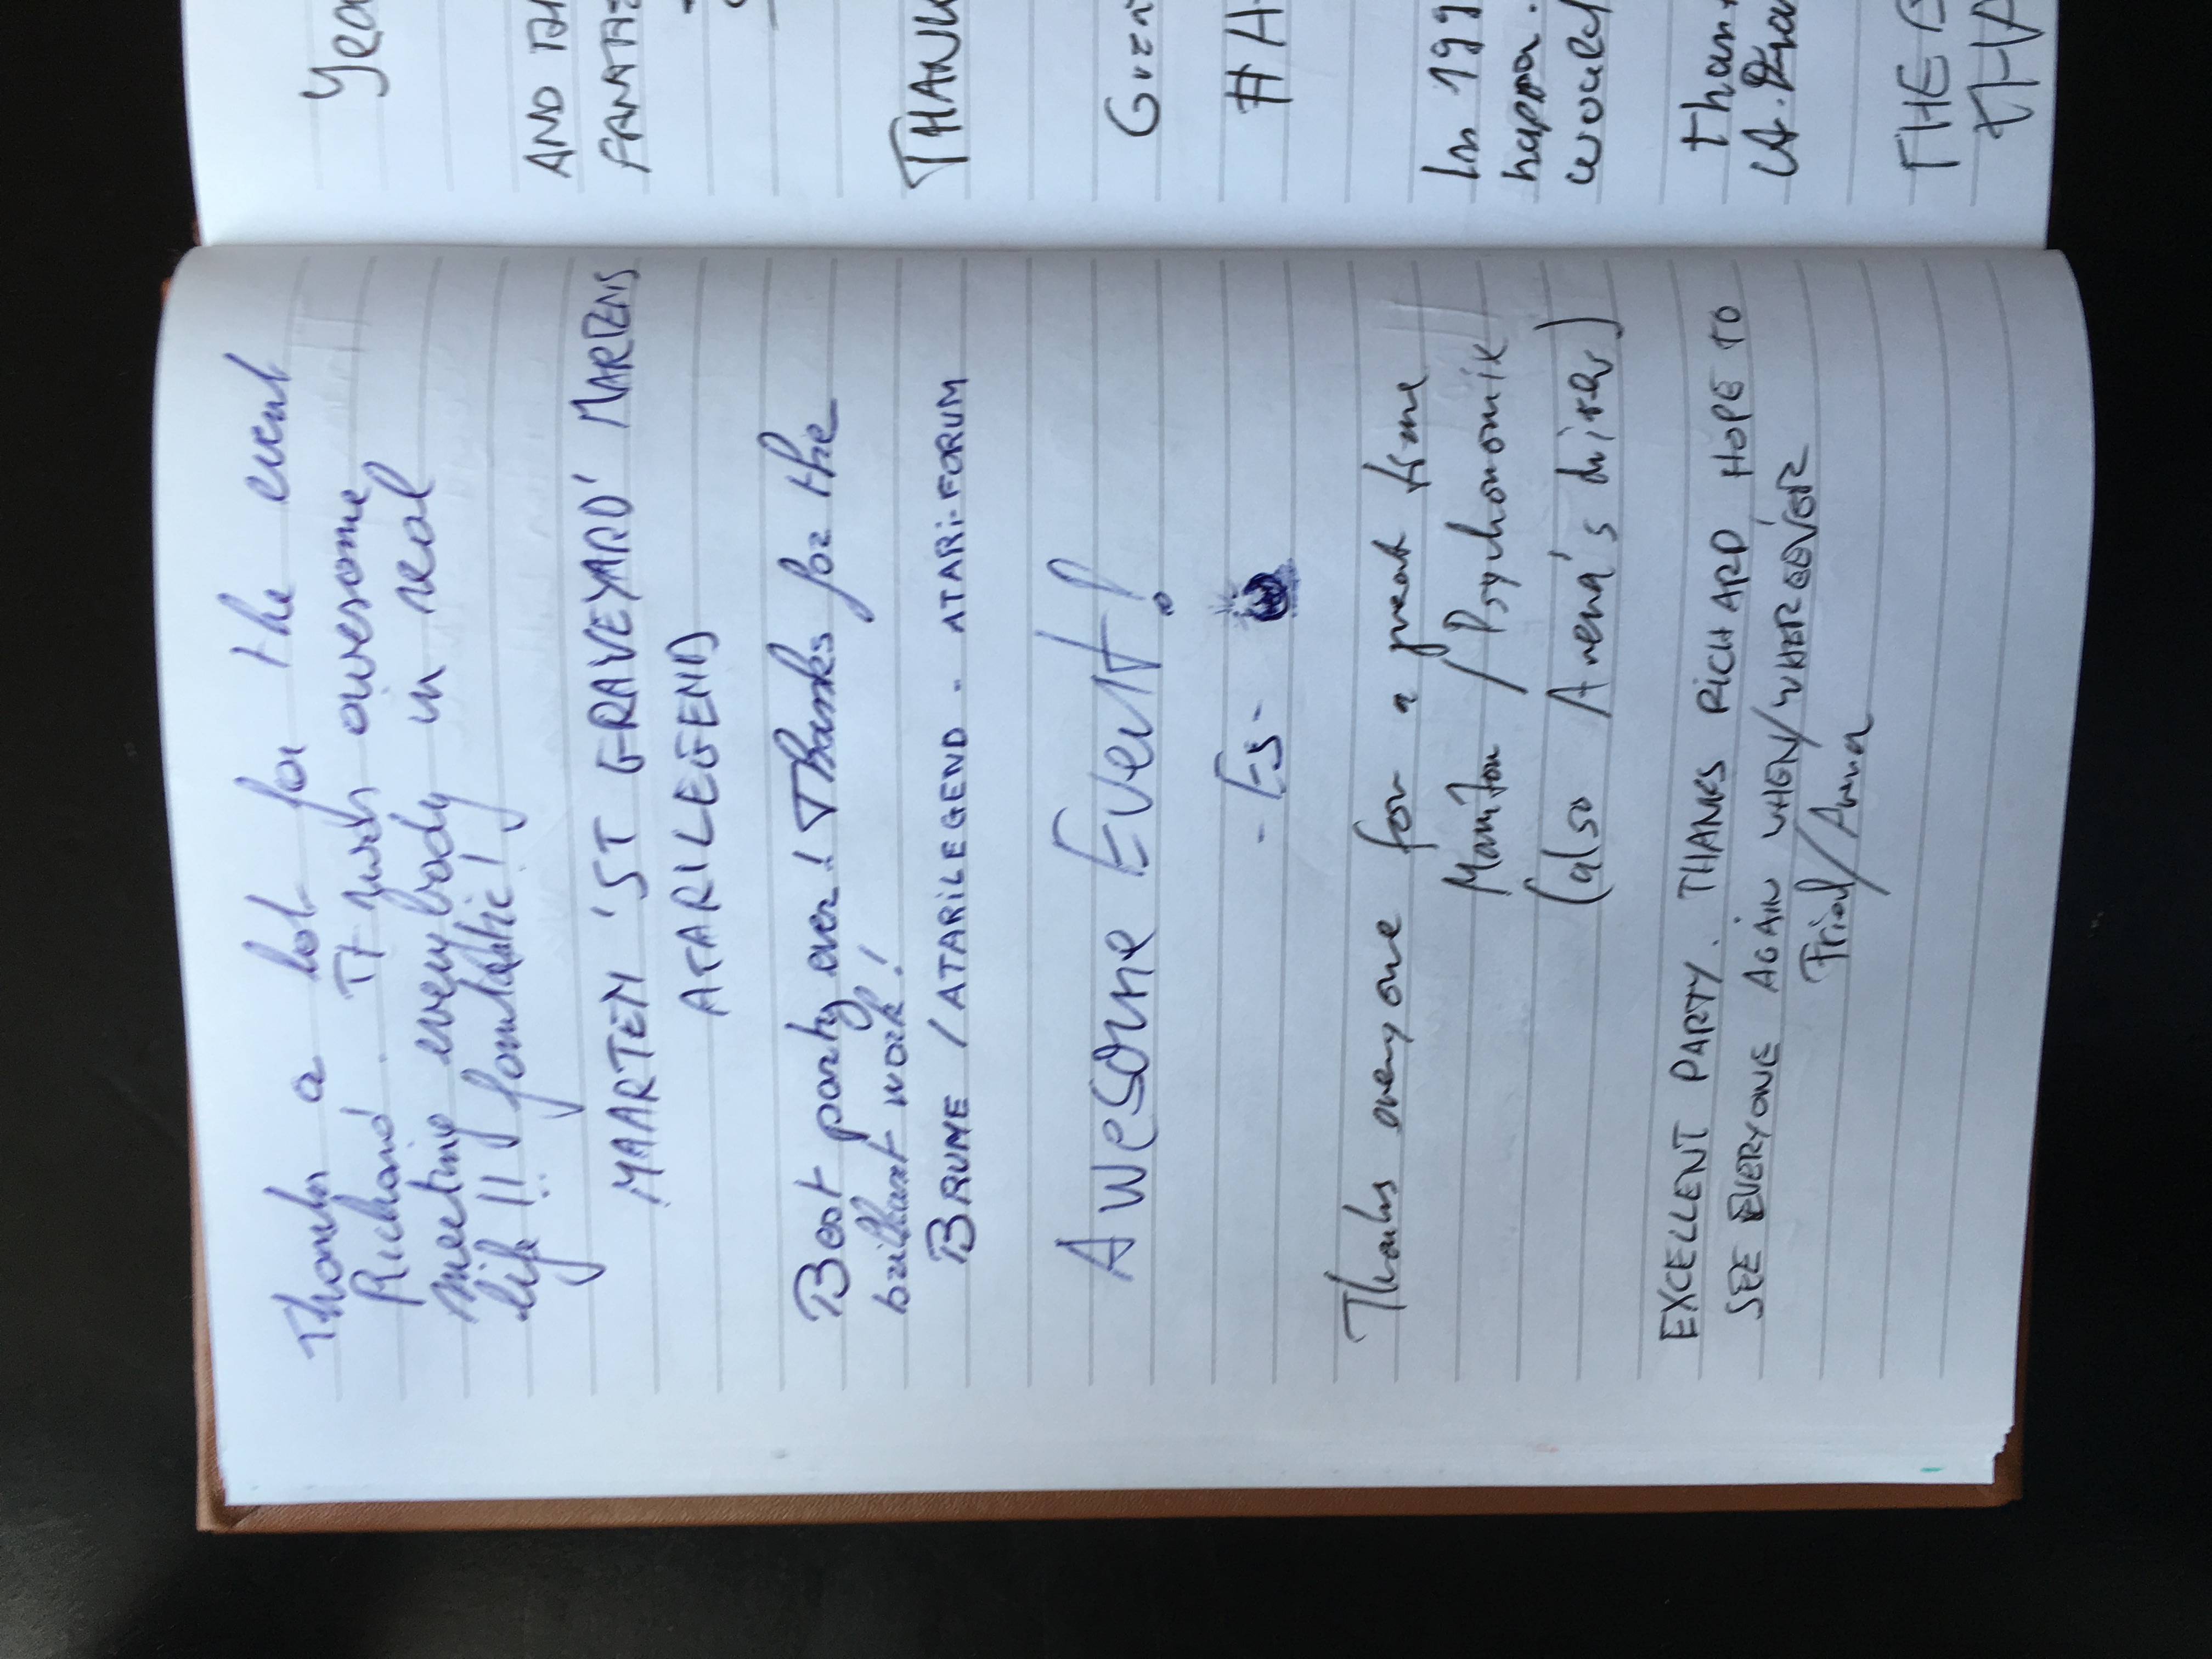 Thanks a lot for the event
Richard. It was awesome
meeting everybody in real
life!! fantastic!
MAARTEN 'ST GRAVEYARD' MARTENS
ATARILEGEND
Best party ever! Thanks for the
brilliant work!
BRUME / ATARILEGEND - ATARI-FORUM
Awesome Event!
- ES -
Thanks everyone for a great time
Manitou / Psychonomix
(also Avena's driver)
EXCELLENT PARTY. THANKS RICHARD, HOPE TO
SEE EVERYONE AGAIN WHEN/WHEREEVER
Fried/Avena
Yea
AND TH
FANTA
THANK
#A
In 199
happ
would
than
THE
THA